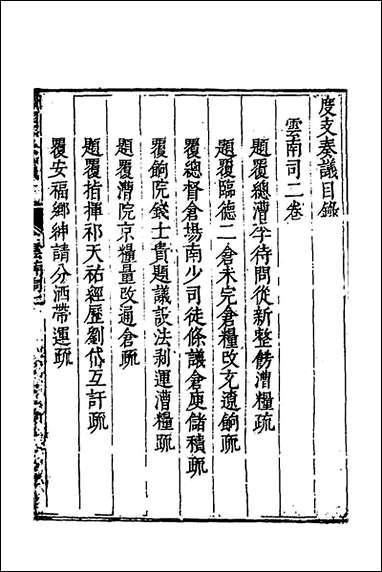 度支奏議目錄
雲南司二卷
題覆總漕李待問從新整飭漕糧疏
題覆臨德二倉未完倉糧改充遼餉疏
覆總督倉場南少司徒條議倉庾儲積疏
覆餉院錢士貴題議設法剥運漕糧疏
題覆漕院京糧量改通倉疏
題覆指揮祁天祐經歷劉岱互訐疏
覆安福鄉紳請分洒帶運疏